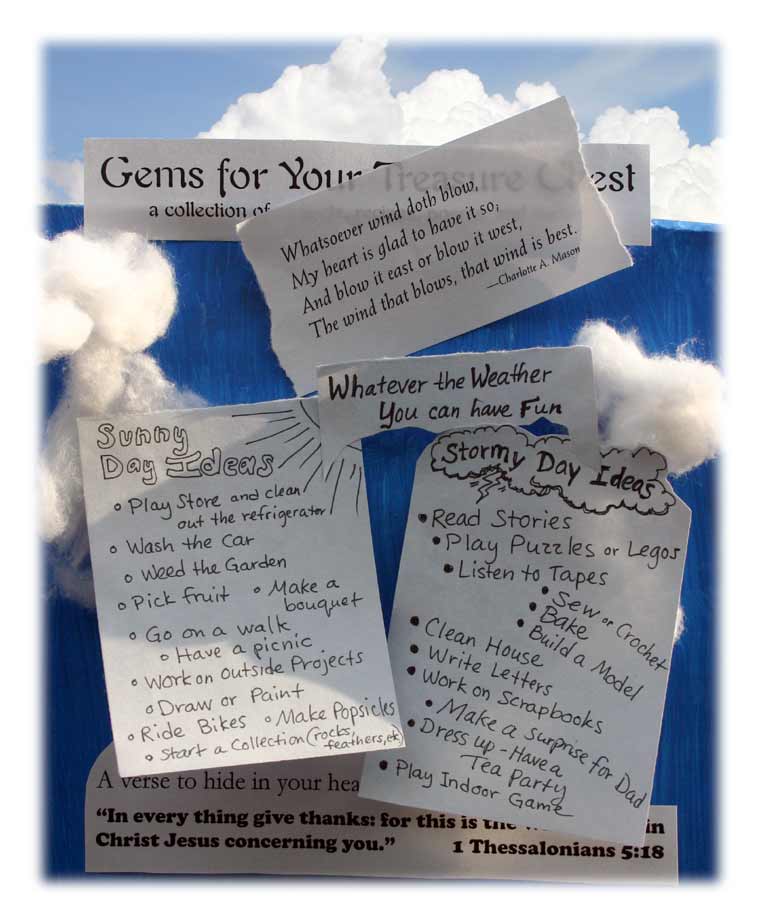 Gems for Your Treasure Chest
a collection of
Whatsoever wind doth blow,
My heart is glad to have it so;
And blow it east or blow it west,
The wind that blows, that wind is best.
—Charlotte A. Mason
Whatever the Weather
You can have Fun
Sunny
Day Ideas
Play Store and clean
out the refrigerator
Wash the Car
Weed the Garden
Pick fruit
Make a
bouquet
Go on a walk
Have a picnic
Work on Outside Projects
Draw or Paint
Ride Bikes
Make Popsicles
Start a Collection (rocks,
feathers, etc)
Stormy Day Ideas
Read Stories
Play Puzzles or Legos
Listen to Tapes
Sew or Crochet
Bake
Build a Model
Clean House
Write Letters
Work on Scrapbooks
Make a surprise for Dad
Dress up - Have a
Tea Party
Play Indoor Game
A verse to hide in your
"In every thing give thanks: for this is the in
Christ Jesus concerning you." 1 Thessalonians 5:18